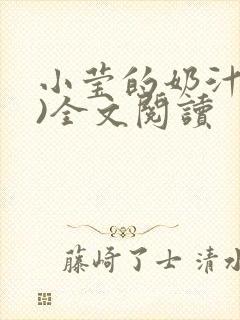 小莹的奶汁
)全文閱讀
藤崎了士 清水